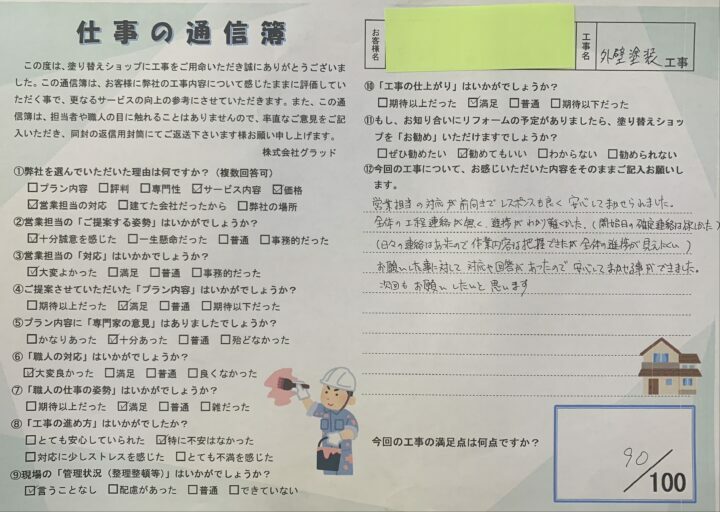 仕事の通信簿
この度は、塗り替えショップに工事をご用命いただき誠にありがとうございま
した。この通信簿は、お客様に弊社の工事内容について感じたままに評価してい
ただく事で、更なるサービスの向上の参考にさせていただきます。また、この通
信簿は、担当者や職人の目に触れることはありませんので、率直なご意見をご記
入いただき、同封の返信用封筒にてご返送下さいます様お願い申し上げます。
株式会社グラッド
①弊社を選んでいただいた理由は何ですか？（複数回答可）
□プラン内容 □評判 □専門性 ☑サービス内容 ☑価格
☑営業担当の対応 □建てた会社だったから □弊社の場所
②営業担当の「ご提案する姿勢」はいかがでしょうか？
☑十分誠意を感じた □一生懸命だった □普通 □事務的だった
③営業担当の「対応」はいかかでしょうか？
☑大変よかった □満足 □普通 □事務的だった
④ご提案させていただいた「プラン内容」はいかがでしょうか？
□期待以上だった ☑満足 □普通 □期待以下だった
⑤プラン内容に「専門家の意見」はありましたでしょうか？
□かなりあった ☑十分あった □普通 □殆どなかった
⑥「職人の対応」はいかがでしょうか？
☑大変良かった □満足 □普通 □良くなかった
⑦「職人の仕事の姿勢」はいかがでしょうか？
□期待以上だった ☑満足 □普通 □雑だった
⑧「工事の進め方」はいかがでしたか？
□とても安心していられた ☑特に不安はなかった
□対応に少しストレスを感じた □とても不満を感じた
⑨現場の「管理状況（整理整頓等）」はいかがでしょうか？
☑言うことなし □配慮があった □普通 □できていない
お客様名
工事名
外壁塗装工事
⑩「工事の仕上がり」はいかがでしょうか？
□期待以上だった ☑満足 □普通 □期待以下だった
⑪もし、お知り合いにリフォームの予定がありましたら、塗り替えショッ
プを「お勧め」いただけますでしょうか？
□ぜひ勧めたい ☑勧めてもいい □わからない □勧められない
⑫今回の工事について、お感じいただいた内容をそのままご記入お願いし
ます。
営業担当の対応が前向きでレスポンスも良く安心してまかせられました。
全体の工程連絡が無く、進捗がわかり難くかった。(開始日の確定連絡は欲しかった)
(日々の連絡はあったので作業内容は把握できたが全体の進捗が見えにくい)
お願いした事に対して対応や回答があったので、安心してまかせる事ができました。
次回もお願いしたいと思います
今回の工事の満足点は何点ですか？
90/100